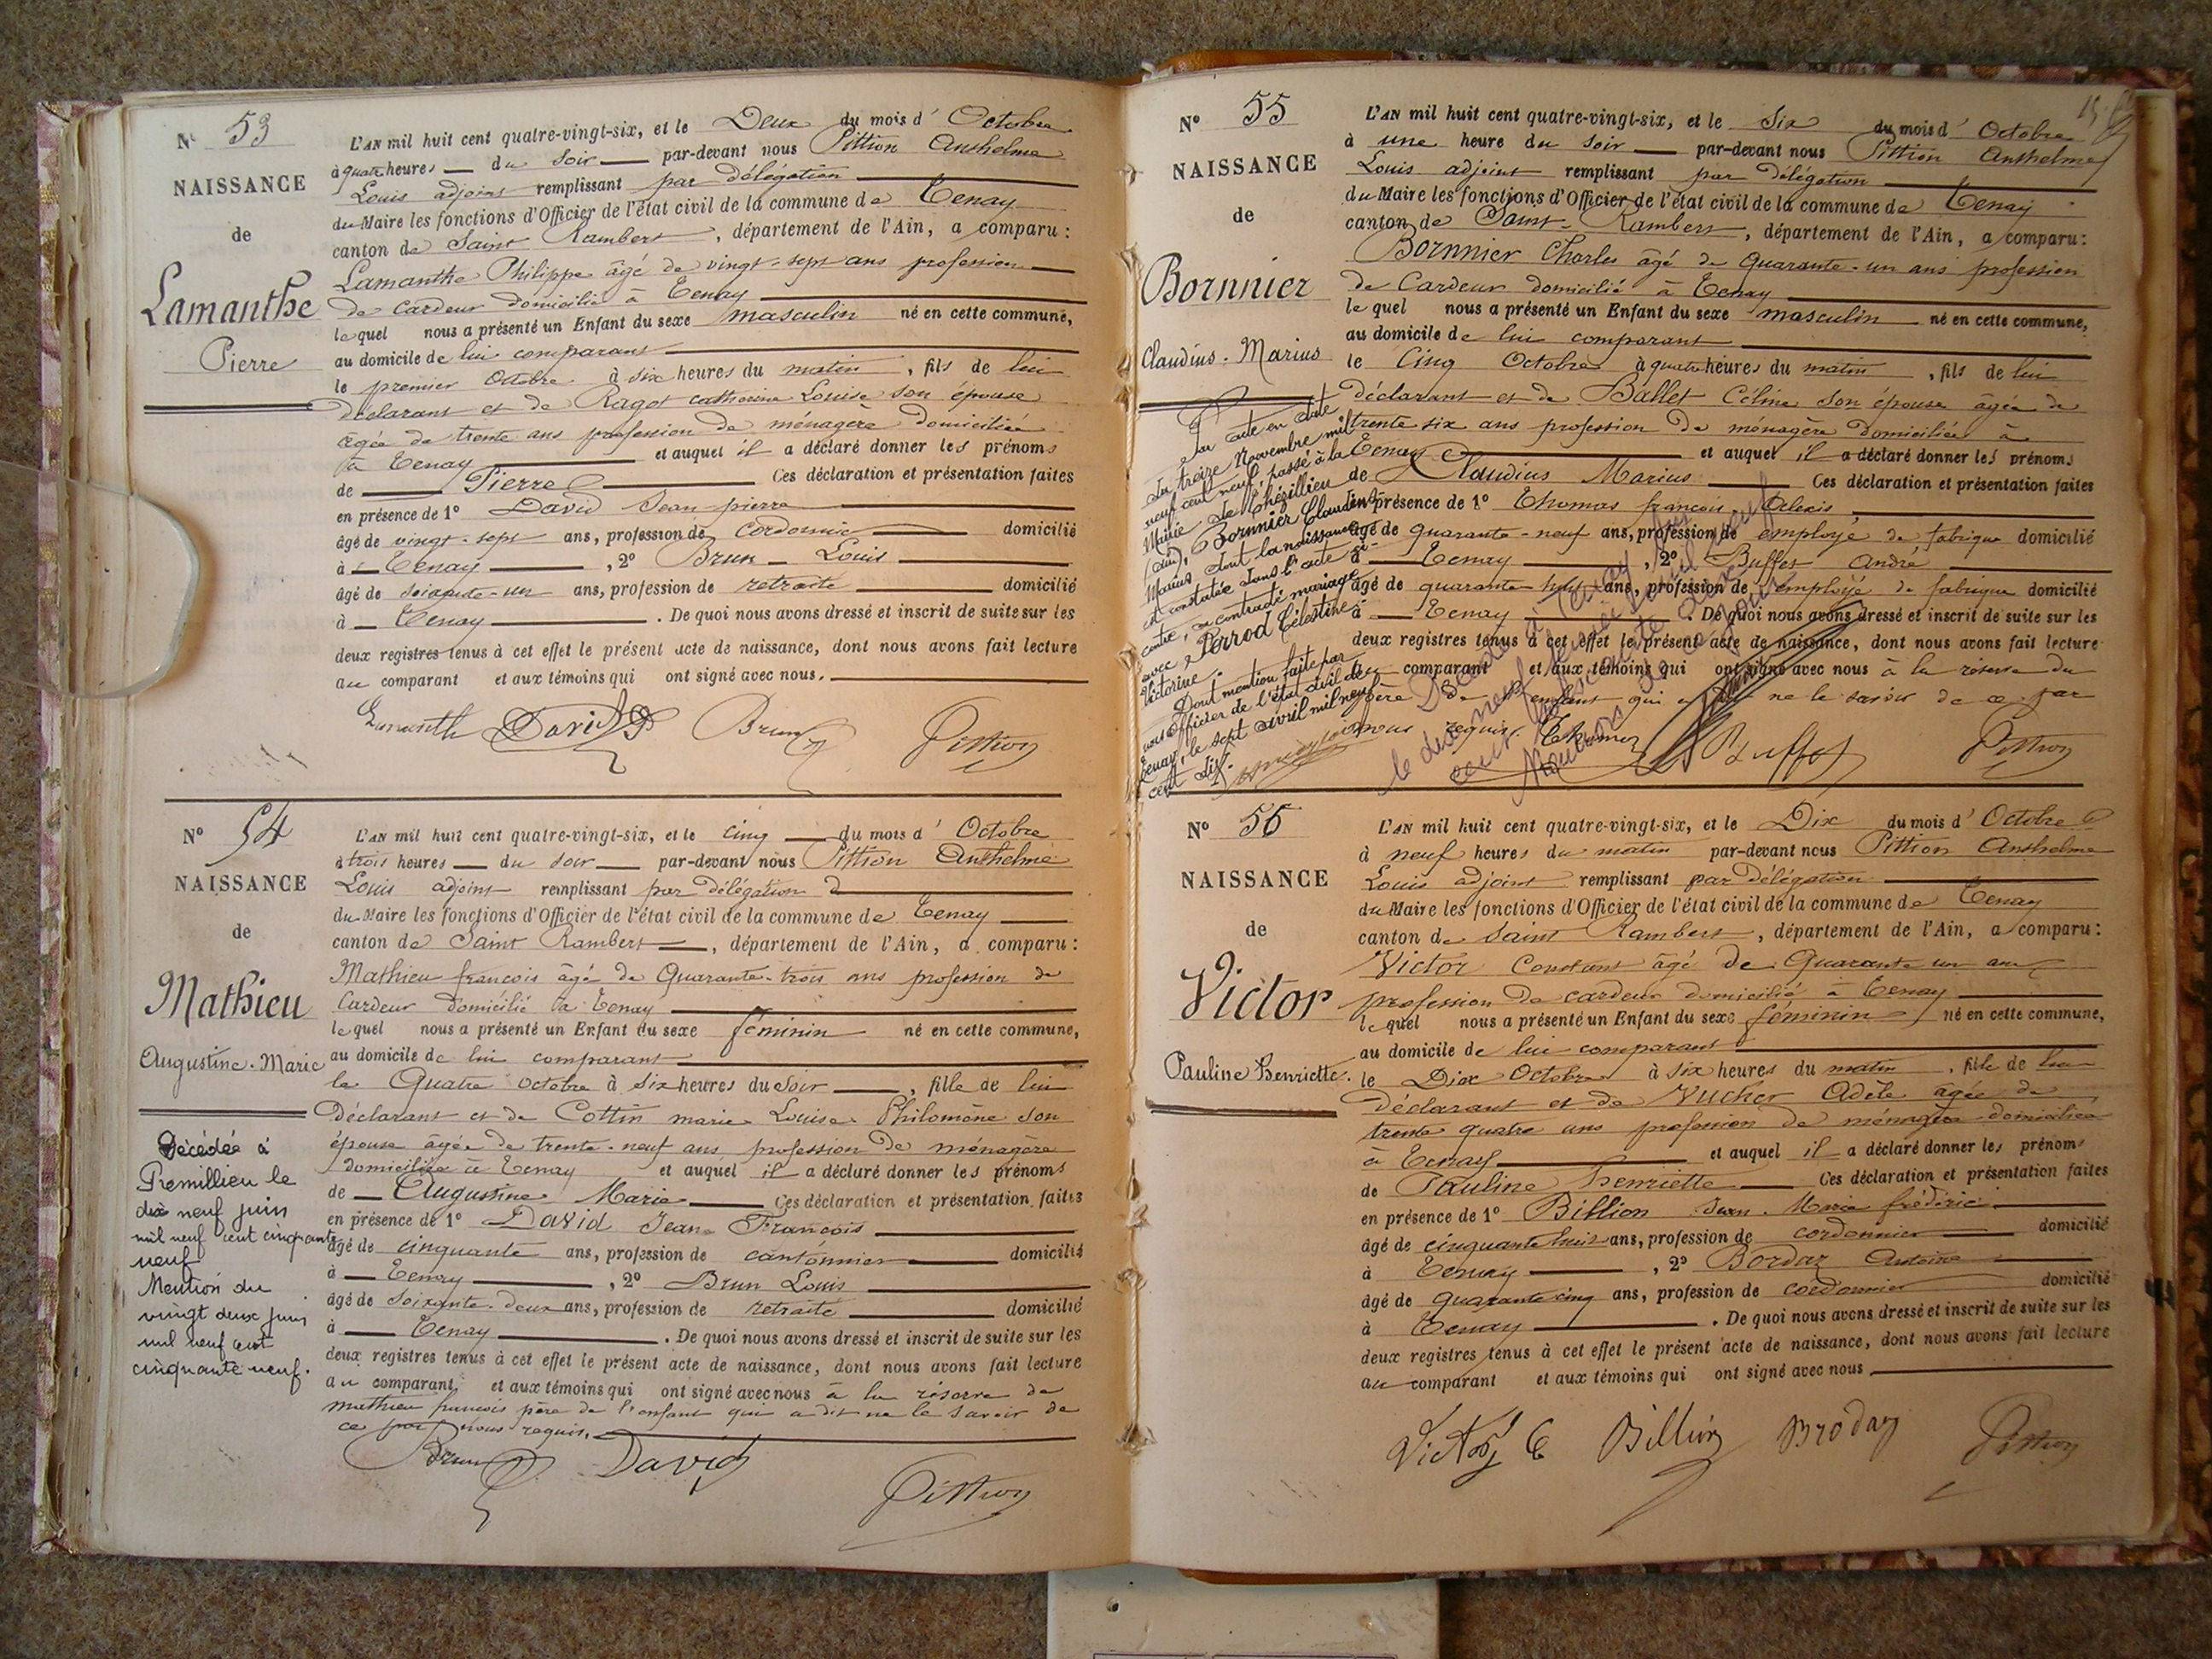 N° 53
NAISSANCE
de
Lamanthe
Pierre
L'AN mil huit cent quatre-vingt-six, et le Deux du mois d' Octobre
à quatre heures du soir par-devant nous Pittion Anthelme
Louis adjoint remplissant par délégation
du Maire les fonctions d'Officier de l'état civil de la commune de Tenay
canton de Saint Rambert, département de l'Ain, a comparu :
Lamanthe Philippe âgé de vingt-sept ans profession
de cardeur domicilié à Tenay
le quel nous a présenté un Enfant du sexe masculin né en cette commune,
au domicile de lui comparant
le premier Octobre à six heures du matin, fils de lui
déclarant et de Ragot catherine Louise son épouse
âgée de trente ans profession de ménagère domiciliée
à Tenay et auquel il a déclaré donner les prénoms
de Pierre Ces déclaration et présentation faites
en présence de 1° David Jean pierre
âgé de vingt-sept ans, profession de cordonnier domicilié
à Tenay, 2° Brun Louis
âgé de soixante-un ans, profession de retraité domicilié
à Tenay. De quoi nous avons dressé et inscrit de suite sur les
deux registres tenus à cet effet le présent acte de naissance, dont nous avons fait lecture
au comparant et aux témoins qui ont signé avec nous.
Lamanth David Brun Pittion
N° 54
NAISSANCE
de
Mathieu
Augustine-Marie
Décédée à
Premillieu le
dix neuf juin
mil neuf cent cinquante
neuf
Mention du
vingt deux juin
mil neuf cent
cinquante neuf.
L'AN mil huit cent quatre-vingt-six, et le cinq du mois d' Octobre
à trois heures du soir par-devant nous Pittion Anthelme
Louis adjoint remplissant par délégation
du Maire les fonctions d'Officier de l'état civil de la commune de Tenay
canton de Saint Rambert, département de l'Ain, a comparu :
Mathieu francois âgé de Quarante-trois ans profession de
Cardeur domicilié à Tenay
le quel nous a présenté un Enfant du sexe féminin né en cette commune,
au domicile de lui comparant
le Quatre octobre à six heures du soir, fille de lui
déclarant et de Cottin marie Louise Philomène son
épouse âgée de trente-neuf ans profession de ménagère
domiciliée à Tenay et auquel il a déclaré donner les prénoms
de Augustine Marie Ces déclaration et présentation faites
en présence de 1° David Jean François
âgé de cinquante ans, profession de cantonnier domicilié
à Tenay, 2° Brun Louis
âgé de soixante-deux ans, profession de retraité domicilié
à Tenay. De quoi nous avons dressé et inscrit de suite sur les
deux registres tenus à cet effet le présent acte de naissance, dont nous avons fait lecture
au comparant et aux témoins qui ont signé avec nous à la réserve de
mathieu francois père de l'enfant qui a dit ne le savoir de
ce par nous requis.
Brun David Pittion
N° 55
NAISSANCE
de
Bornnier
Claudius-Marius
Par acte en date
du treize Novembre mil
neuf cent neuf, passé à la
Mairie de Thézillieu
(Ain), Bornnier Claudius
Marius dont la naissance
est constatée dans l'acte ci-
contre, a contracté mariage
avec Perrod Célestine
Victorine.
Dont mention faite par
nous Officier de l'état civil de
Tenay, le sept avril mil neuf
cent dix.
L'AN mil huit cent quatre-vingt-six, et le Six du mois d' Octobre
à une heure du soir par-devant nous Pittion Anthelme
Louis adjoint remplissant par délégation
du Maire les fonctions d'Officier de l'état civil de la commune de Tenay
canton de Saint-Rambert, département de l'Ain, a comparu :
Bornnier Charles âgé de Quarante-un ans profession
de Cardeur domicilié à Tenay
le quel nous a présenté un Enfant du sexe masculin né en cette commune,
au domicile de lui comparant
le Cinq Octobre à quatre heures du matin, fils de lui
déclarant et de Ballet Céline son épouse âgée de
trente six ans profession de ménagère domiciliée à
Tenay et auquel il a déclaré donner les prénoms
de Claudius Marius Ces déclaration et présentation faites
en présence de 1° Thomas francois Alexis
âgé de quarante-neuf ans, profession de employé de fabrique domicilié
à Tenay, 2° Buffet André
âgé de quarante-huit ans, profession de employé de fabrique domicilié
à Tenay. De quoi nous avons dressé et inscrit de suite sur les
deux registres tenus à cet effet le présent acte de naissance, dont nous avons fait lecture
au comparant et aux témoins qui ont signé avec nous à la réserve du
père de l'enfant qui a dit ne le savoir de ce par
nous requis.
Thomas Buffet Pittion
Décédé à Tenay
N° 56
NAISSANCE
de
Victor
Pauline Henriette.
L'AN mil huit cent quatre-vingt-six, et le Dix du mois d' Octobre
à neuf heures du matin par-devant nous Pittion Anthelme
Louis adjoint remplissant par délégation
du Maire les fonctions d'Officier de l'état civil de la commune de Tenay
canton de Saint Rambert, département de l'Ain, a comparu :
Victor Constant âgé de Quarante un ans
profession de cardeur domicilié à Tenay
le quel nous a présenté un Enfant du sexe féminin né en cette commune,
au domicile de lui comparant
le Dix Octobre à six heures du matin, fille de lui
déclarant et de Vucher Adèle âgée de
trente quatre ans profession de ménagère domiciliée
à Tenay et auquel il a déclaré donner les prénoms
de Pauline Henriette Ces déclaration et présentation faites
en présence de 1° Billion Jean-Marie frédéric
âgé de cinquante huit ans, profession de cordonnier domicilié
à Tenay, 2° Bordaz Antoine
âgé de quarante cinq ans, profession de cordonnier domicilié
à Tenay. De quoi nous avons dressé et inscrit de suite sur les
deux registres tenus à cet effet le présent acte de naissance, dont nous avons fait lecture
au comparant et aux témoins qui ont signé avec nous
Victor C Billion Brodaz Pittion